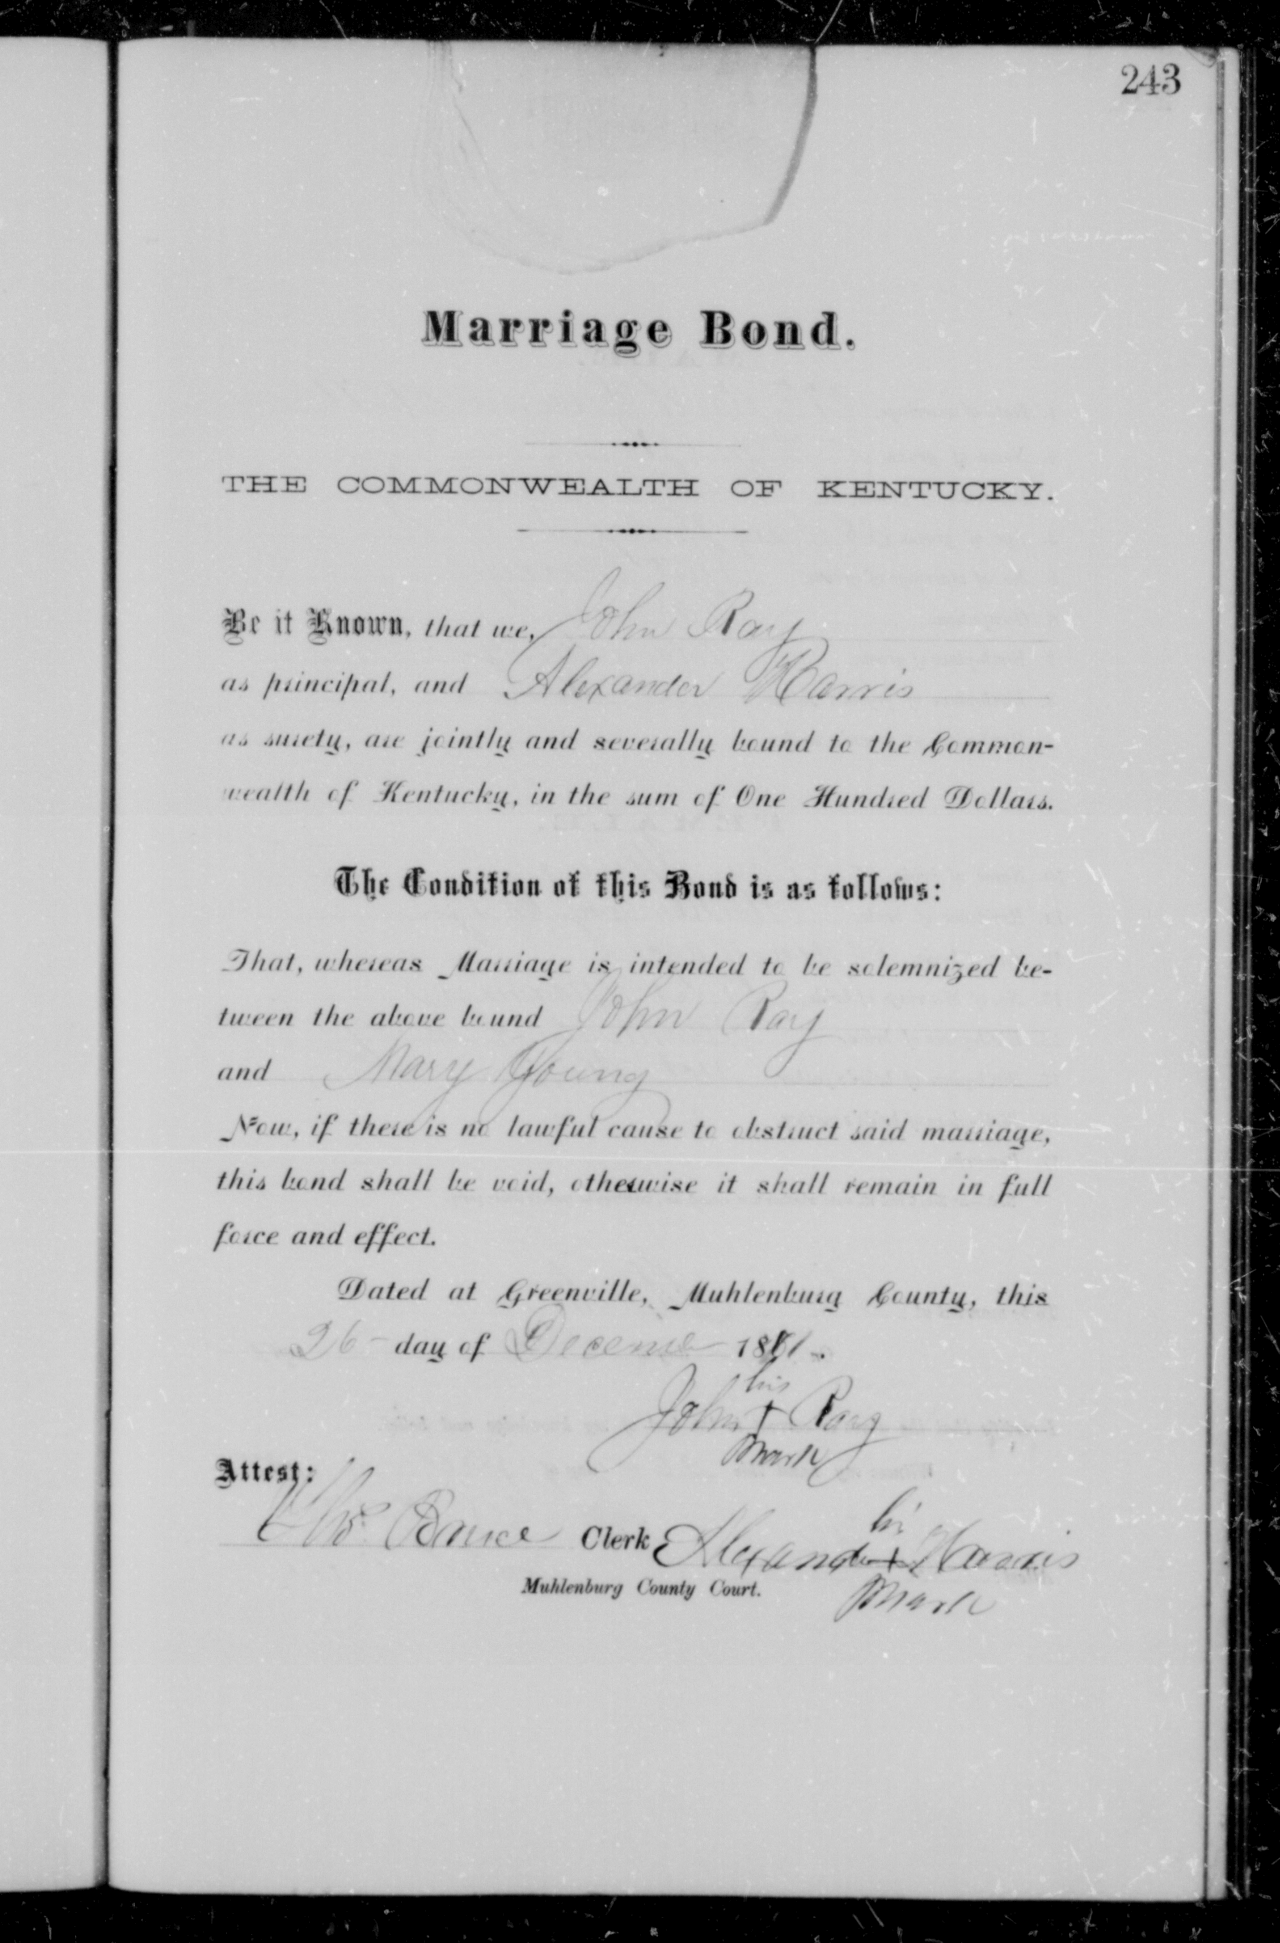 243
Marriage Bond.
THE COMMONWEALTH OF KENTUCKY.
Be it Known, that we, John Ray
as principal, and Alexander Harris
as surety, are jointly and severally bound to the Common-
wealth of Kentucky, in the sum of One Hundred Dollars.
The Condition of this Bond is as follows:
That, whereas Marriage is intended to be solemnized be-
tween the above bound John Ray
and Mary Young
Now, if there is no lawful cause to obstruct said marriage,
this bond shall be void, otherwise it shall remain in full
force and effect.
Dated at Greenville, Muhlenburg County, this
26 - day of
his
John + Ray
mark
Attest:
Clerk
his
Alexander + Harris
mark
Muhlenburg County Court.